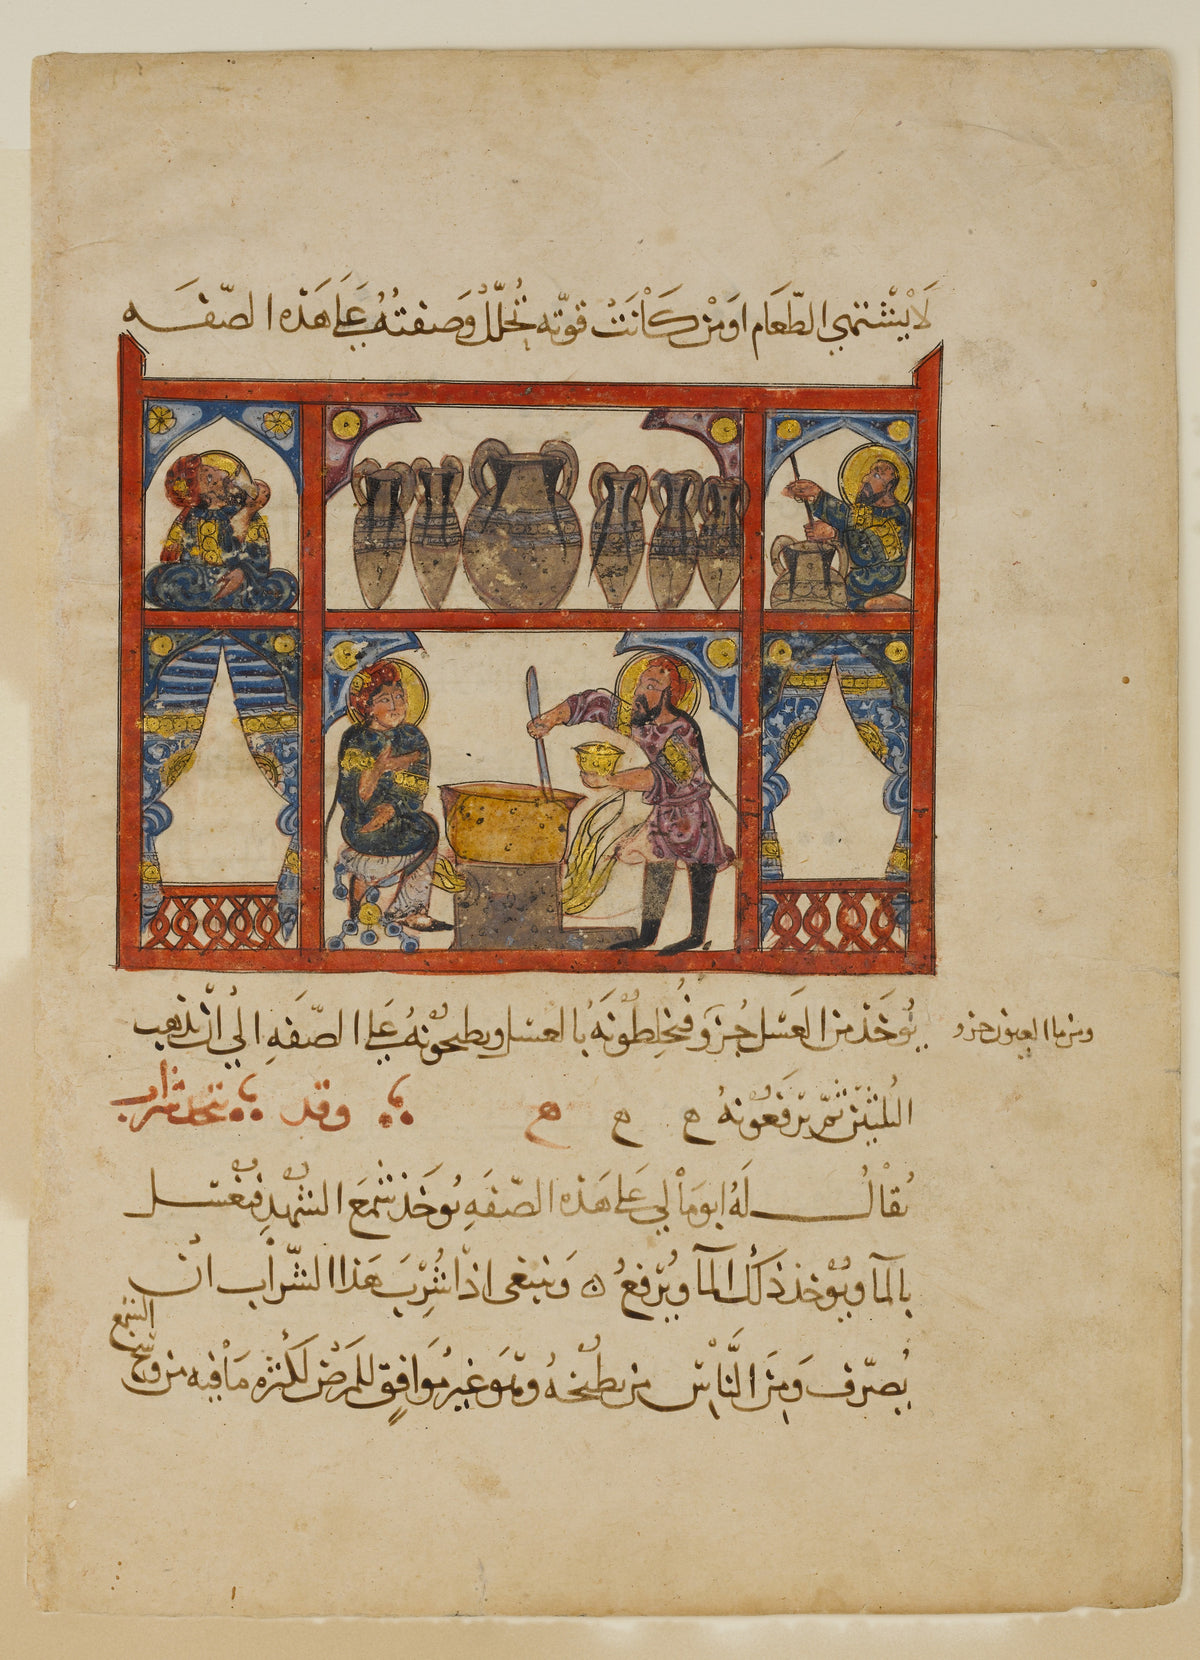 لَا يَشْتَهِي الطَّعَام اوَمَنْ كَانَتْ قوّته تُحَلّلُ وَصَنعتُهُ عَلَى هَذِه الصّفَه
يُؤخَذ من العَسَل جُزؤ فيخلِطُونَهُ بالعسل ويطبخُونهُ عَلى الصّفَهِ الي انْ يذهب
ومن ما العيون جزو
الثلثين ثمّ يَرفَعُونهُ ه ه ه وقد يتخذ شراب
يُقالُ لَهُ ابوَمَالي عَلى هَذه الصّفَهِ يُوخَذ شَمَعَ الشهدِ فيغسل
بالمآ ويُوخذ ذَلكَ المآ ويُرفعُ ه وَينبغي اذا شُرِبَ هَذا الشّرَاب انْ
يُصرّف وَمِنَ النَّاسِ من يطبخهُ وهوَ غير مُوَافِق للمَرضَى لكثرة مَا فيه من وسخ
الشمع